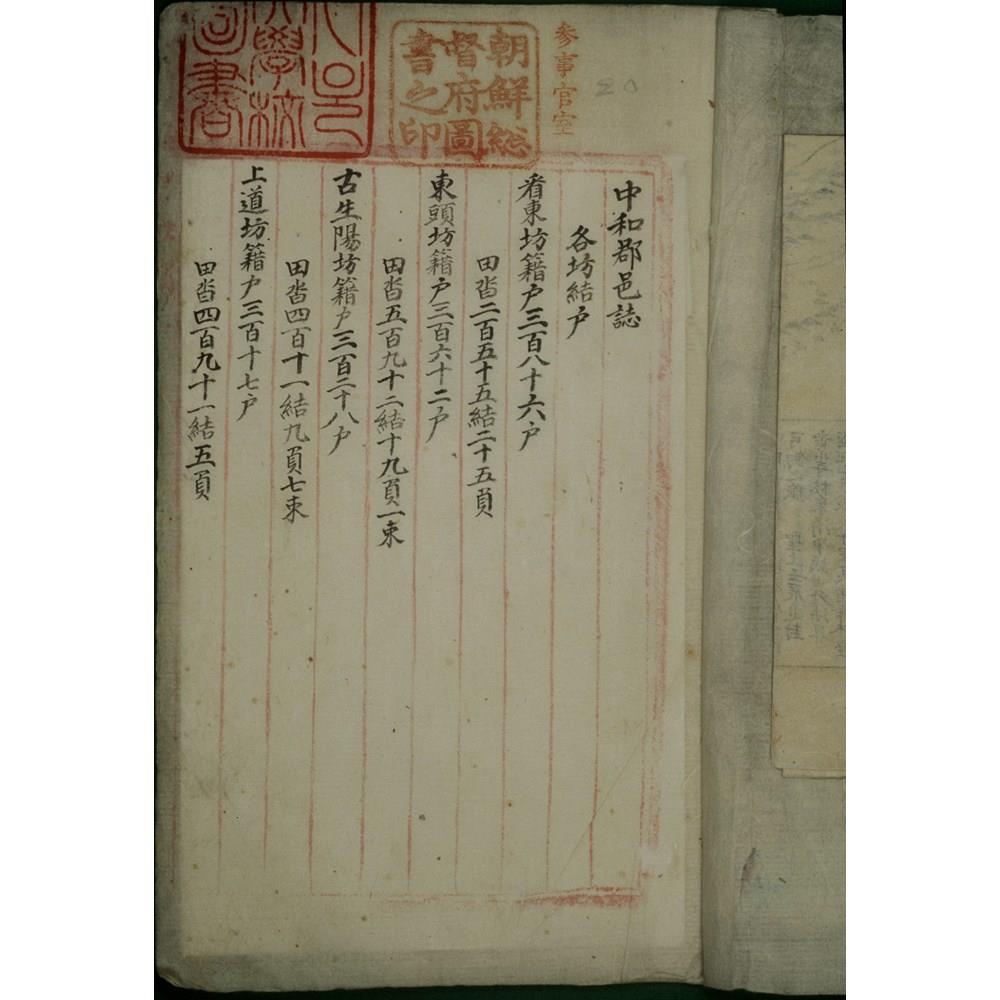 參事官室
20
朝鮮総
督府圖
書之印
中和郡邑誌
各坊結户
看東坊籍户三百八十六户
田畓二百五十五結二十五負
東頭坊籍户三百六十二户
田畓五百九十二結十九負一束
古生陽坊籍户三百二十八户
田畓四百十一結九負七束
上道坊籍户三百十七户
田畓四百九十一結五負